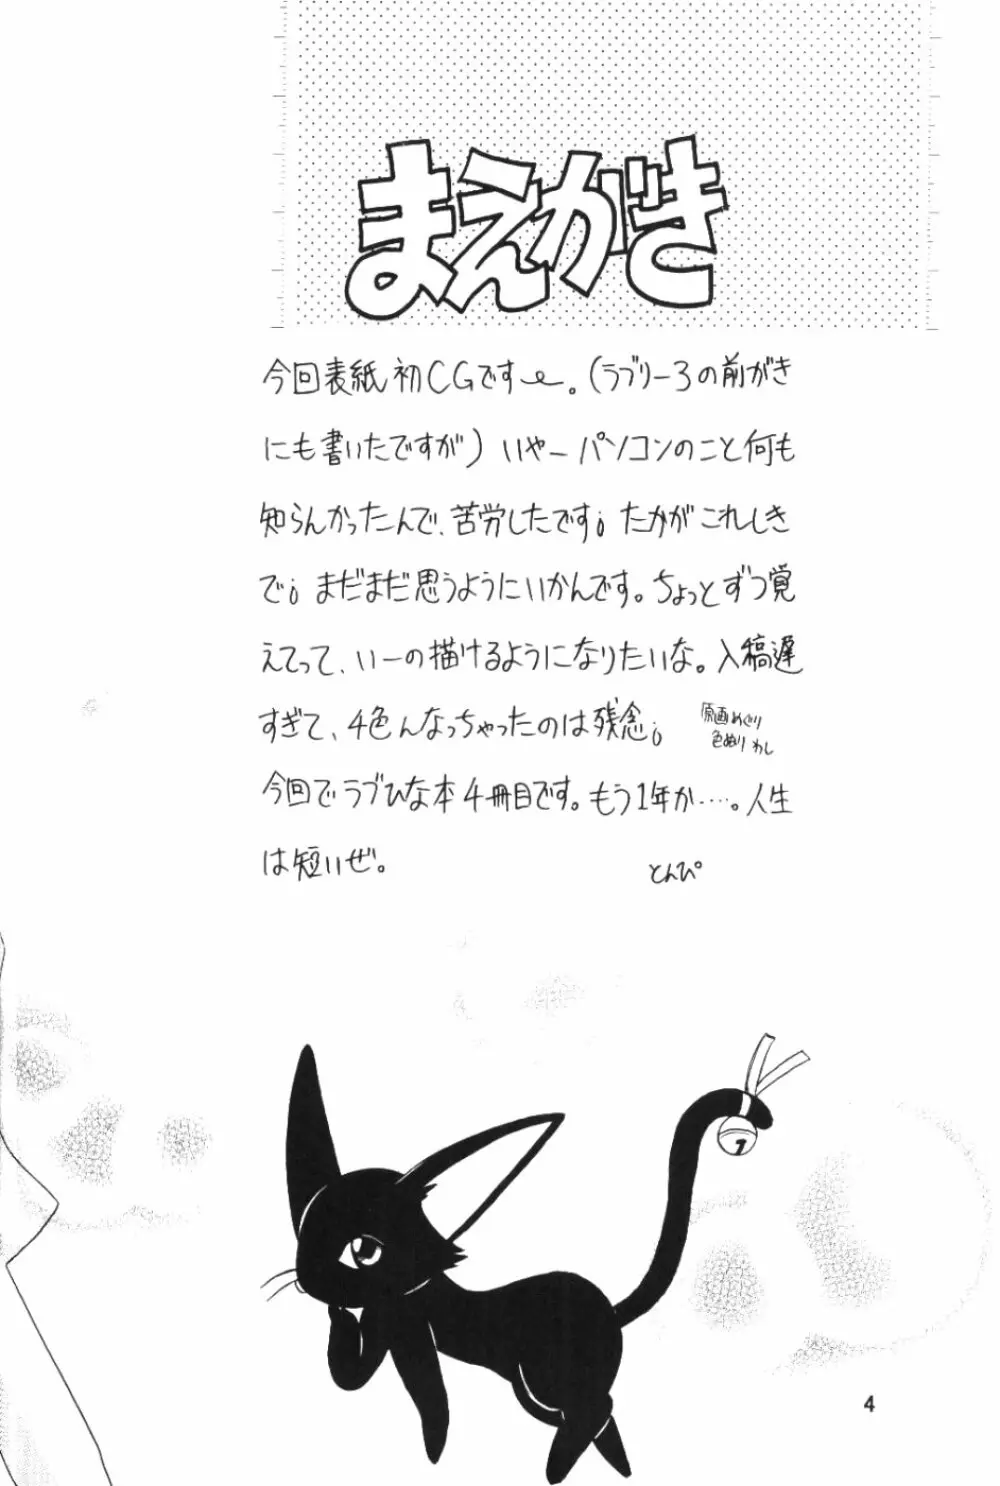 まえがき
今回表紙初CGですぅ。(ラブリー3の前がき
にも書いたですが)いやーパソコンのこと何も
知らんかったんで、苦労したです。たかがこれしき
で。まだまだ思うようにいかんです。ちょっとずつ覚
えてって、いーの描けるようになりたいな。入稿遅
すぎて、4色んなっちゃったのは残念。
原画めぐり
色ぬりわし
今回でラブひな本4冊目です。もう1年か……。人生
は短いぜ。
とんぴ
4